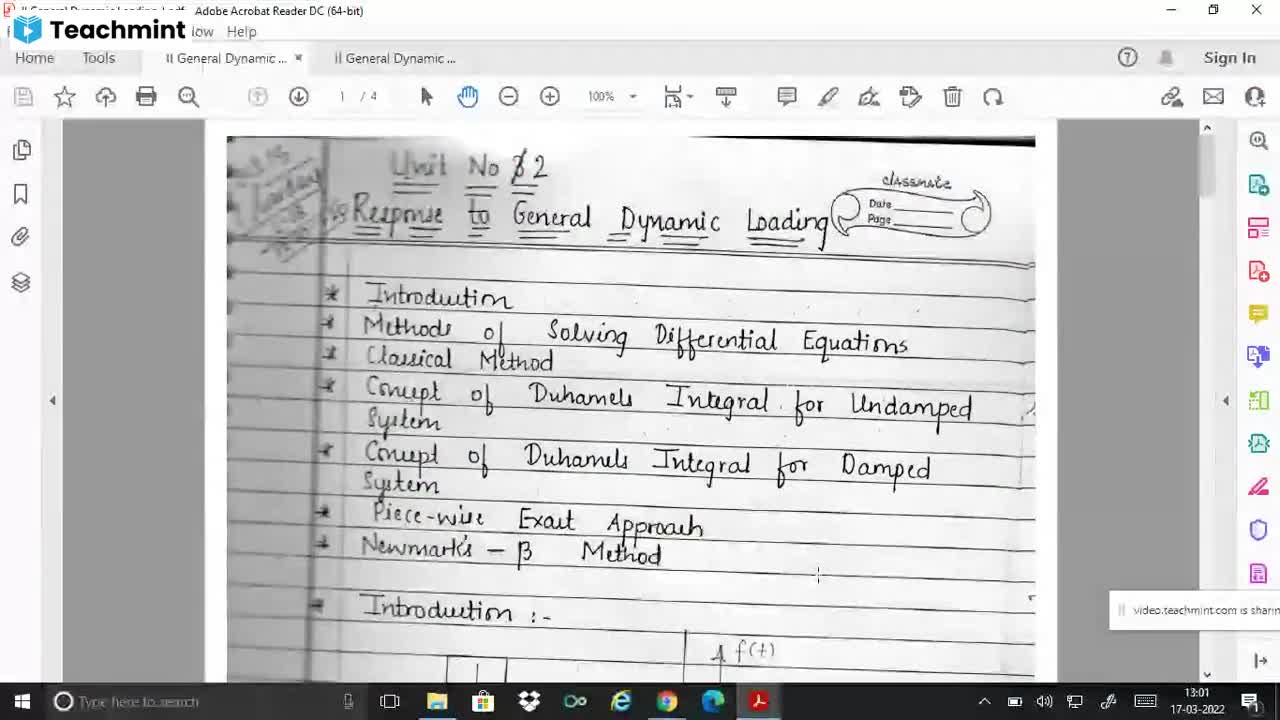 II General Dynamic Loading-1.pdf - Adobe Acrobat Reader DC (64-bit)
Teachmint
Help
Home
Tools
II General Dynamic ...
II General Dynamic ...
Sign In
1 / 4
100%
Unit No 2
Response to General Dynamic Loading
classmate
Date
Page
* Introduction
* Methods of Solving Differential Equations
* Classical Method
* Concept of Duhamels Integral for Undamped
System
* Concept of Duhamels Integral for Damped
System
* Piece-wise Exact Approach
* Newmark's - β Method
Introduction :-
f(t)
video.teachmint.com is sharin
Type here to search
13:01
17-03-2022